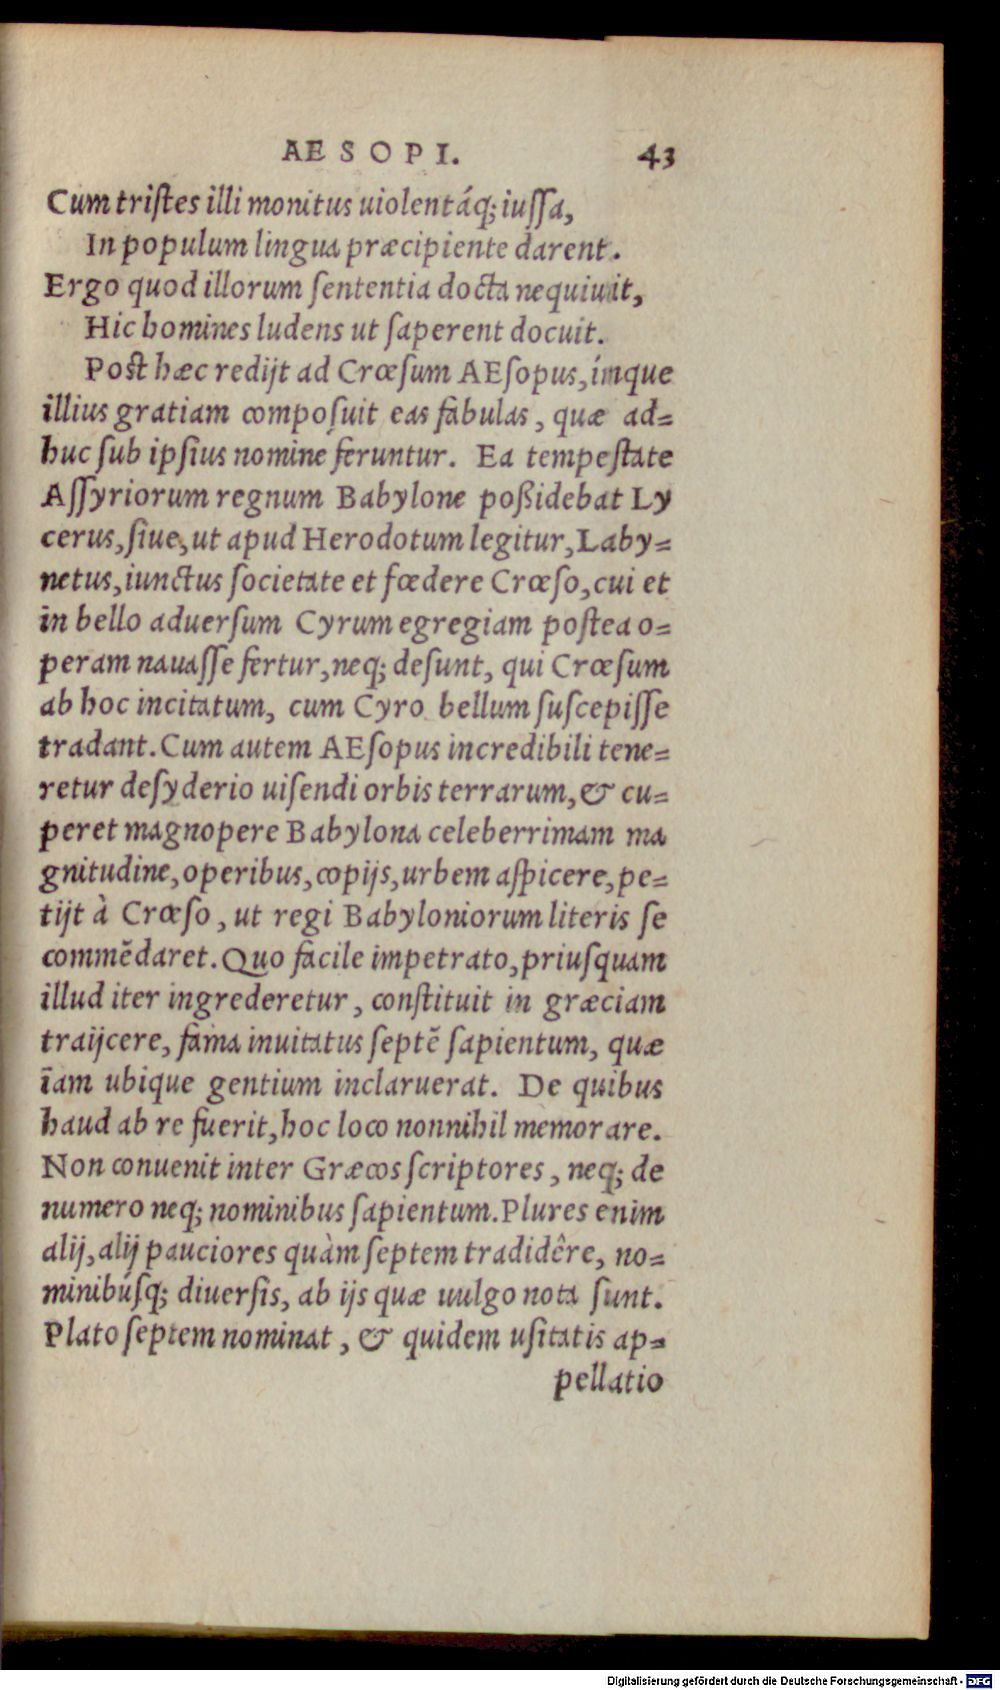 AESOPI. 43
Cum tristes illi monitus uiolentáq; iussa,
In populum lingua præcipiente darent.
Ergo quod illorum sententia docta nequiuit,
Hic homines ludens ut saperent docuit.
Post hæc redijt ad Crœsum AEsopus, ímque
illius gratiam composuit eas fabulas, quæ ad=
huc sub ipsius nomine feruntur. Ea tempestate
Assyriorum regnum Babylone poßidebat Ly
cerus, siue, ut apud Herodotum legitur, Laby=
netus, iunctus societate et fœdere Crœso, cui et
in bello aduersum Cyrum egregiam postea o=
peram nauasse fertur, neq; desunt, qui Crœsum
ab hoc incitatum, cum Cyro bellum suscepisse
tradant. Cum autem AEsopus incredibili tene=
retur desyderio uisendi orbis terrarum, & cu=
peret magnopere Babylona celeberrimam ma
gnitudine, operibus, copijs, urbem aspicere, pe=
tijt à Crœso, ut regi Babyloniorum literis se
commēdaret. Quo facile impetrato, priusquam
illud iter ingrederetur, constituit in græciam
traijcere, fama inuitatus septē sapientum, quæ
iam ubique gentium inclaruerat. De quibus
haud ab re fuerit, hoc loco nonnihil memorare.
Non conuenit inter Græcos scriptores, neq; de
numero neq; nominibus sapientum. Plures enim
alij, alij pauciores quàm septem tradidêre, no=
minibúsq; diuersis, ab ijs quæ uulgo nota sunt.
Plato septem nominat, & quidem usitatis ap=
pellatio
Digitalisierung gefördert durch die Deutsche Forschungsgemeinschaft - DFG